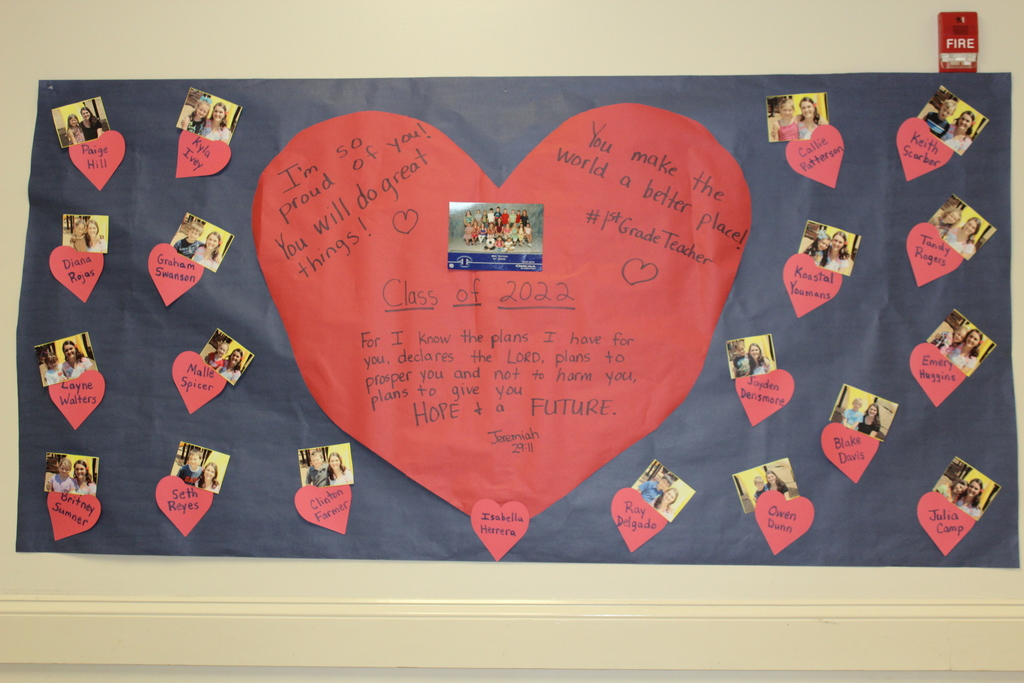 FIRE
I'm so
proud of you!
You will do great
things!
You make the
world a better place!
#1stGradeTeacher
Class of 2022
For I know the plans I have for
you, declares the LORD, plans to
prosper you and not to harm you,
plans to give you
HOPE & a FUTURE.
Jeremiah
29:11
Paige
Hill
Kyla
Ivey
Diana
Rojas
Graham
Swanson
Layne
Walters
Malle
Spicer
Britney
Sumner
Seth
Reyes
Clinton
Farmer
Isabella
Herrera
Callie
Patterson
Keith
Scarbor
Koastal
Youmans
Tandy
Rogers
Jayden
Densmore
Emery
Huggins
Blake
Davis
Ray
Delgado
Owen
Dunn
Julia
Camp